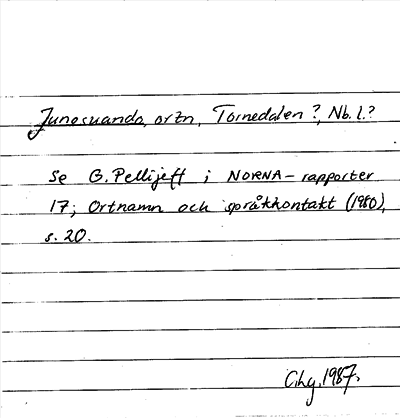 Junosuando, ortn, Tornedalen?, Nb.l.?
Se G. Pellijeff i NORNA-rapporter
17; Ortnamn och språkkontakt (1980),
s. 20.
C.hg. 1987.